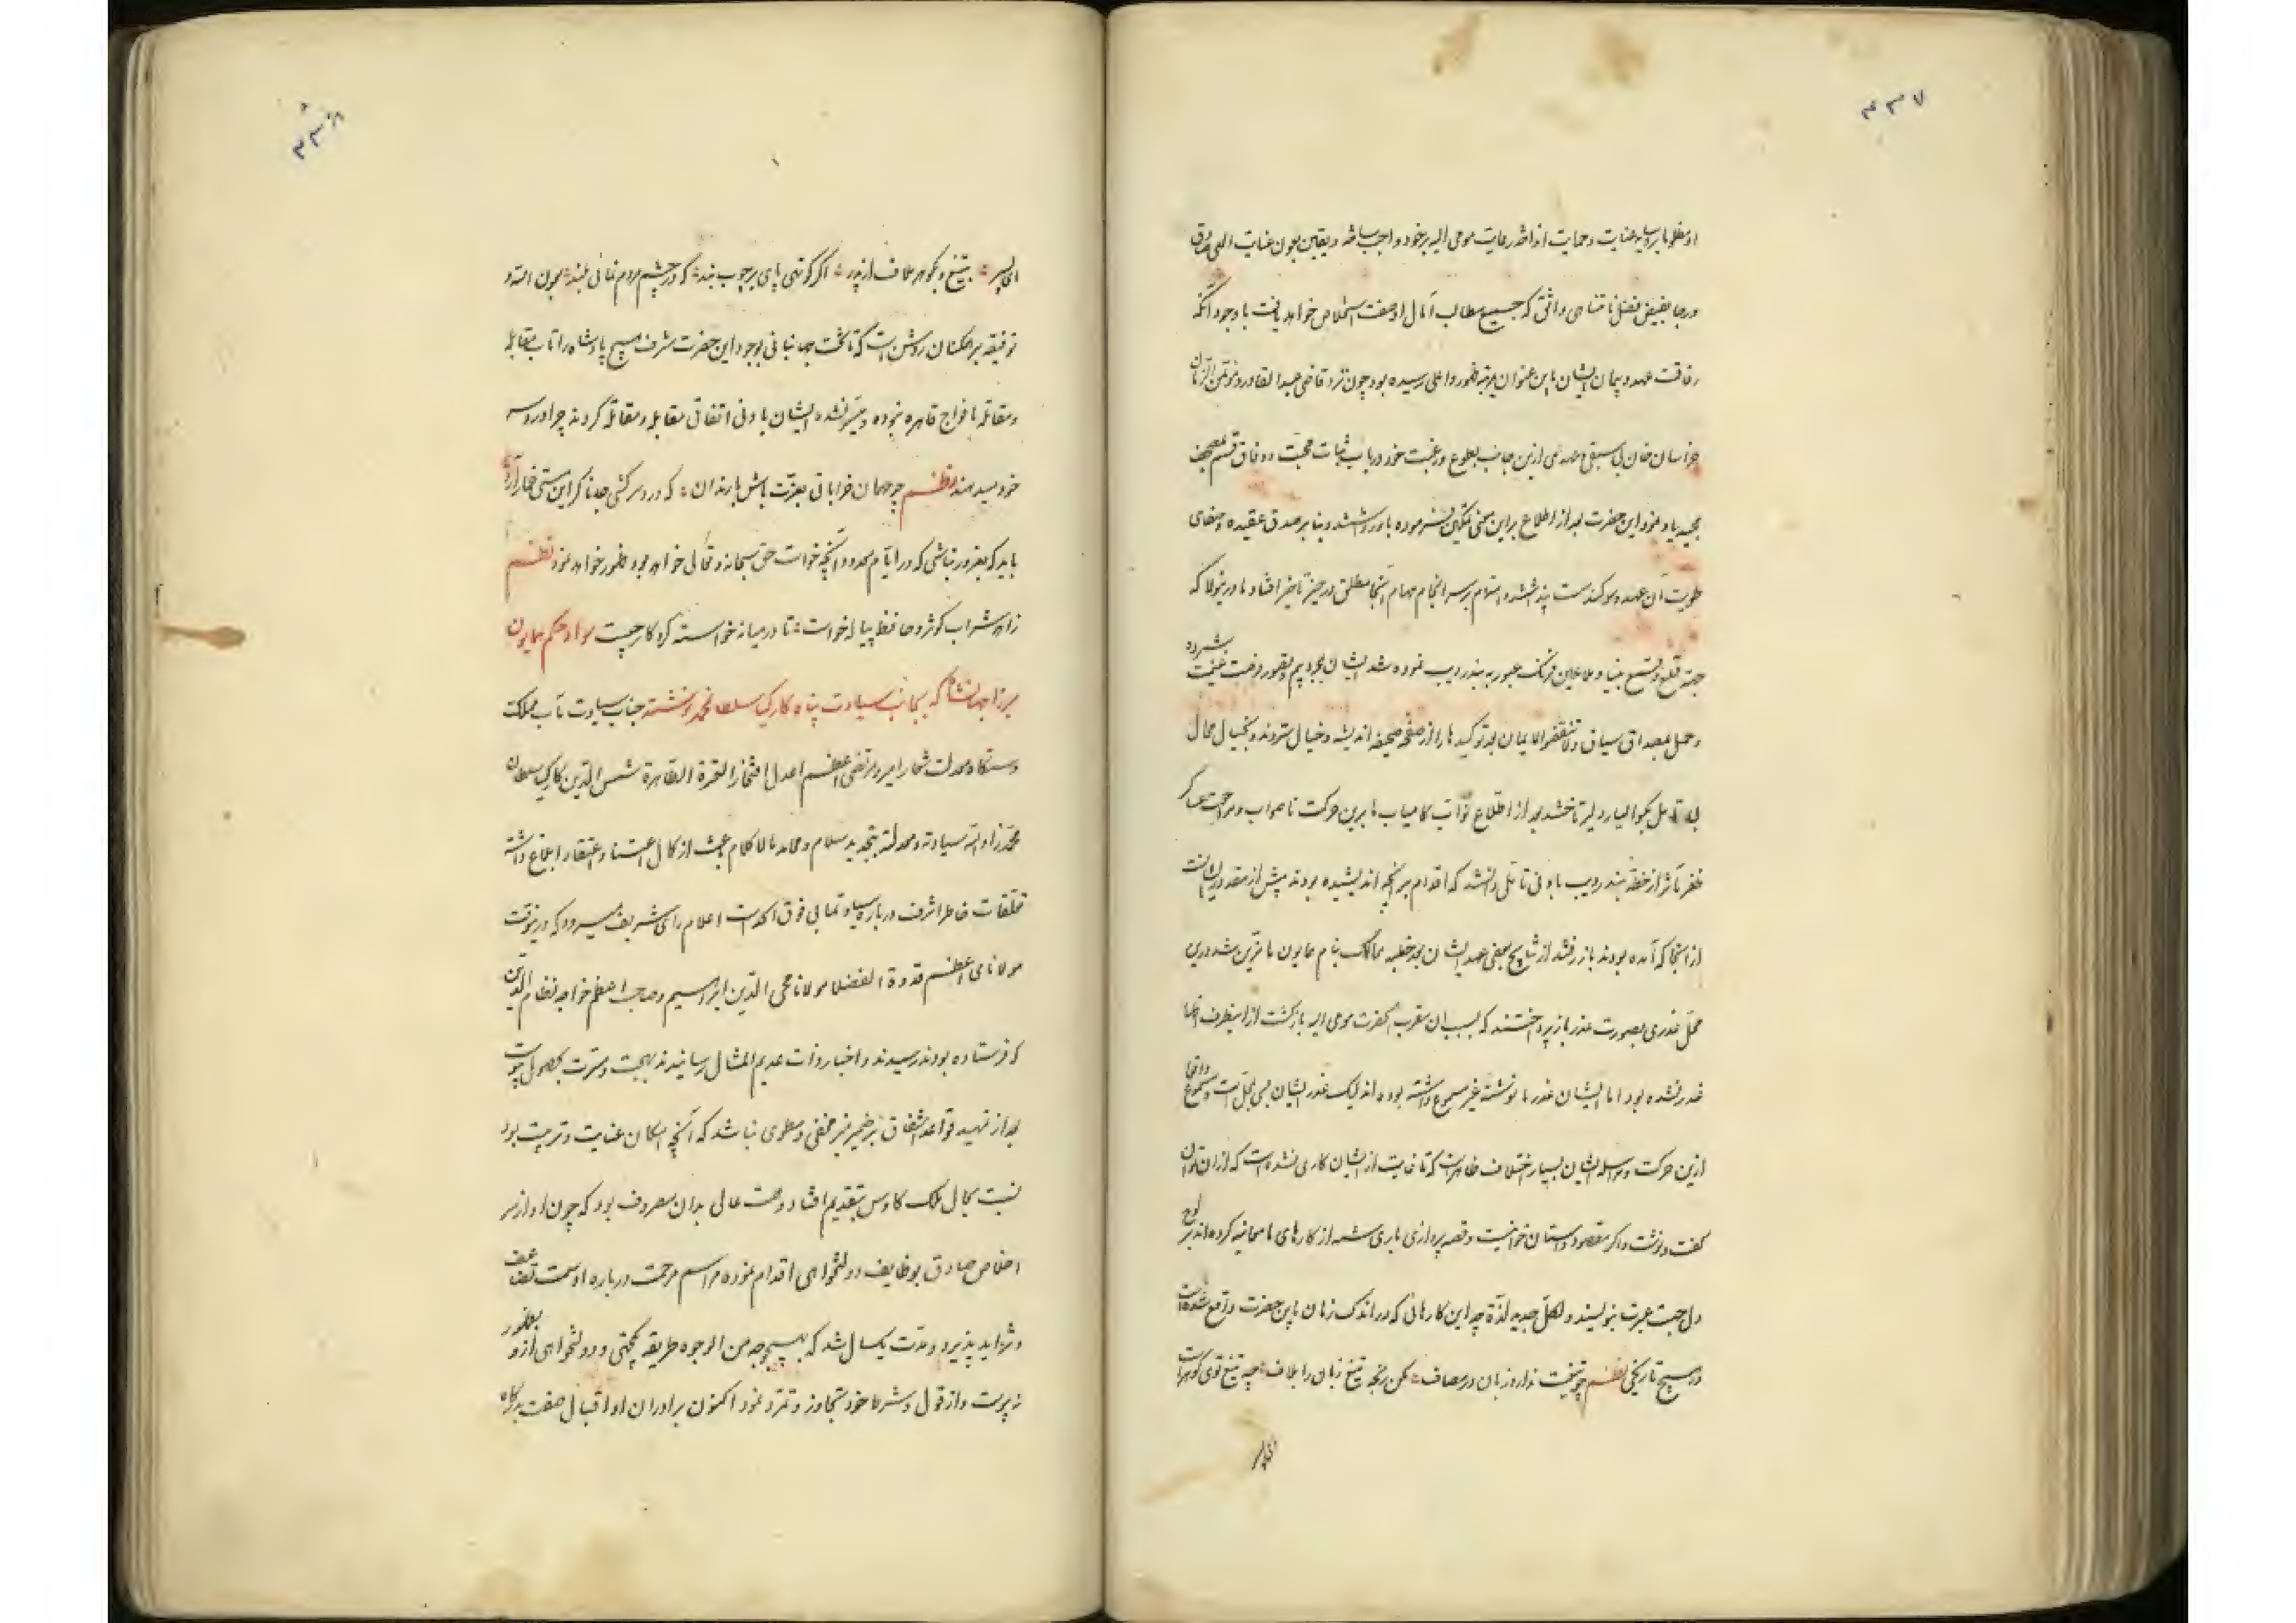 ۴۳۷
او مظلوبا بر سایه عنایت و حمایت انداخته رعایت مومی الیه بر خود واجب ساخته و یقین بعون عنایت الهی صادق
و رجا بفیض فضل نامتناهی واثق که جمیع مطالب آمال او صفت استخلاص خواهد یافت با وجود آنکه
رفاقت عهد و پیمان ایشان باین عنوان بمرتبه ظهور و اعلی رسیده بود چون نزد قاضی عبدالقادر و مؤتمن الزمان
خراسان خان بی سبقی عهدی ازین جانب بطوع و رغبت خود در باب ثبات محبت و وفاق قسم بمصحف
مجید یاد نمود این حضرت بعد از اطلاع براین معنی تمکین فرموده باور داشتند و بنا بر صدق عقیده و صفای
طویت آن عهد و سوکند درست پنداشتند و اهتمام بر سر انجام مهام آنجا مطلق در حیز تاخیر افتاد تا درینولا که
جهت قلع و قمع بنیاد ملاعین فرنک عبور به بندر دیب نموده شد ایشان بمجرد بیم و تصور فرصت غنیمت شمرده
و حمل بمصداق سیاق ولا تنقضوا الایمان بعد توکیدها را از صفحه صحیفه اندیشه و خیال ستردند و بخیال محال
بله تامل بکوالیار دلیر تاختند بعد از اطلاع نواب کامیاب ما برین حرکت ناصواب و مراجعت عساکر
ظفر مآثر از خطه بندر دیب باونی تاملی دانستند که اقدام بر آنچه اندیشیده بودند بیش از مقدور ایشانست
از آنجا که آمده بودند باز رفتند از نتایج بعض عهد ایشان بعد خطبه ممالک بنام همایون ما مزین شد درین
محل عذری بصورت عذر باز پرداختند که بسبب آن مقرب الحضرت مومی الیه بازکشت از اینطرف اظهار
غدر نشده بود اما ایشان عذر ما نوشته غیر مسموع داشته بوده اند لیک عذر ایشان بسی بمحل است و مسموع واقعا
ازین حرکت و مراسله ایشان بسیار اختلاف ظاهر است که تا غایت از ایشان کاری نشده است که از ان توان
کفت و نوشت و اکر مقصود داستان خوانیست و قصه پردازی باری شمه از کارهای ما معاینه کرده اند بر لوح
دل جهت عبرت بنویسند و لکل جدید لذة چه این کارهائی که در اندک زمان باین حضرت واقع شده است
در هیچ تاریخی نظم چو تیغت ندارد زبان در مصاف ؞ مکن رنجه تیغ زبان را بلاف ؞ چه تیغ توی کوهر است
ای پسر
۴۳۸
ای پسر ؞ بتیغ و بکوهر ملاف از پدر ؞ اکر کوتهی پای بر چوب بند ؞ که در چشم مردم نمائی بلند ؞ بعون الله و
توفیقه بر همکنان روشن است که تا تخت جهانبانی بوجود این حضرت مشرف هیچ پادشاه را تاب مقابله
و مقاتله با افواج قاهره نبوده و میسر نشده ایشان با وفی اتفاق مقابله و مقاتله کردند چرا دردسر
خود میدهند نظم چو مهمان خراباتی بعزت باش با رندان ؞ که دردسر کشی جانا کر این مستی خمار آرد
باید که مغرور نباشی که در ایام معدود آنچه خواست حق سبحانه و تعالی خواهد بود بظهور خواهد نمود نظم
زاهد شراب کوثر و حافظ پیاله خواست ؞ تا در میانه خواسته کردکار چیست سواد حکم همایون
میرزا جهانشاه که بجانب سیادت پناه کارکیا سلطان محمد نوشته جناب سیادت مآب مملکت
دستکاه معدلت شعار امیر و مرتضی اعظم اعدل افتخار العترة الطاهرة شمس الدین کارکیا سلطان
محمد زاد الله سیادته و معدلته بتجدید سلام و محامد مالا کلام مبعث از کمال اعتنا و اعتقاد ابلاغ داشته
تعلقات خاطر اشرف درباره سیادتمآبی فوق الحد است اعلام رای شریف میرود که درینوقت
مولانای اعظم قدوة الفضلا مولانا محی الدین ابراهیم و صاحب اعظم خواجه نظام الدین
که فرستاده بودند رسیدند و اخبار ذات عدیم المثال رسانیدند بهجت و مسرت بحصول پیوست
بعد از تمهید قواعد اشفاق بر ضمیر منیر مخفی و مطوی نباشد که آنچه امکان عنایت و تربیت بود
نسبت بحال ملک کاوس بتقدیم افتاد و همت عالی بدان مصروف بود که چون او از سر
اخلاص صادق بوظایف دولتخواهی اقدام نموده مراسم مرحمت درباره او سمت تضاعف
و تزاید پذیرد و مدت یکسال شد که بهیچوجه من الوجوه طریقه یکجهتی و دولتخواهی ازو بظهور
نه پیوست و از قول و شرط خود تجاوز و تمرد نمود اکنون برادران او اقبال صفت بدرکاه